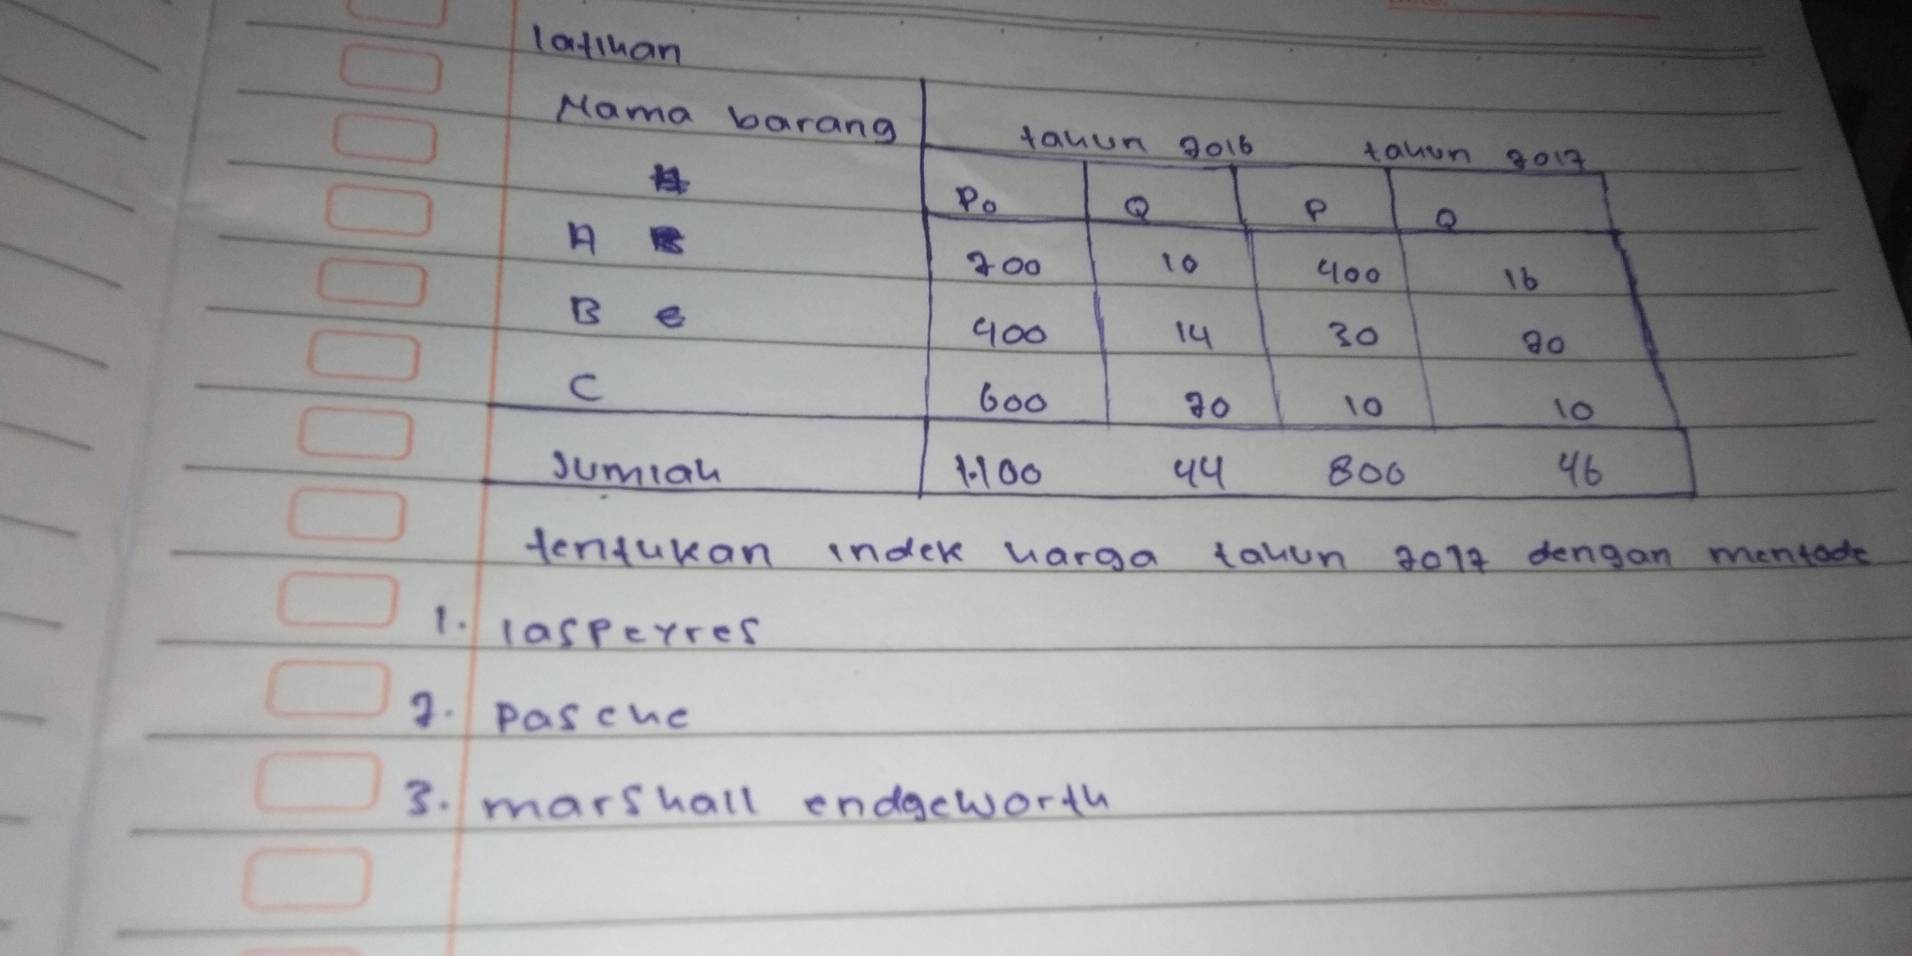 latihan
Nama barang tahun 2016 tahun 2017
Po Q P Q
A 200 10 400 16
B 400 14 30 20
C 600 20 10 10
Jumlah 1.100 44 800 46
tentukan indek harga tahun 2017 dengan mentode
1. laspeyres
2. pasche
3. marshall endgeworth